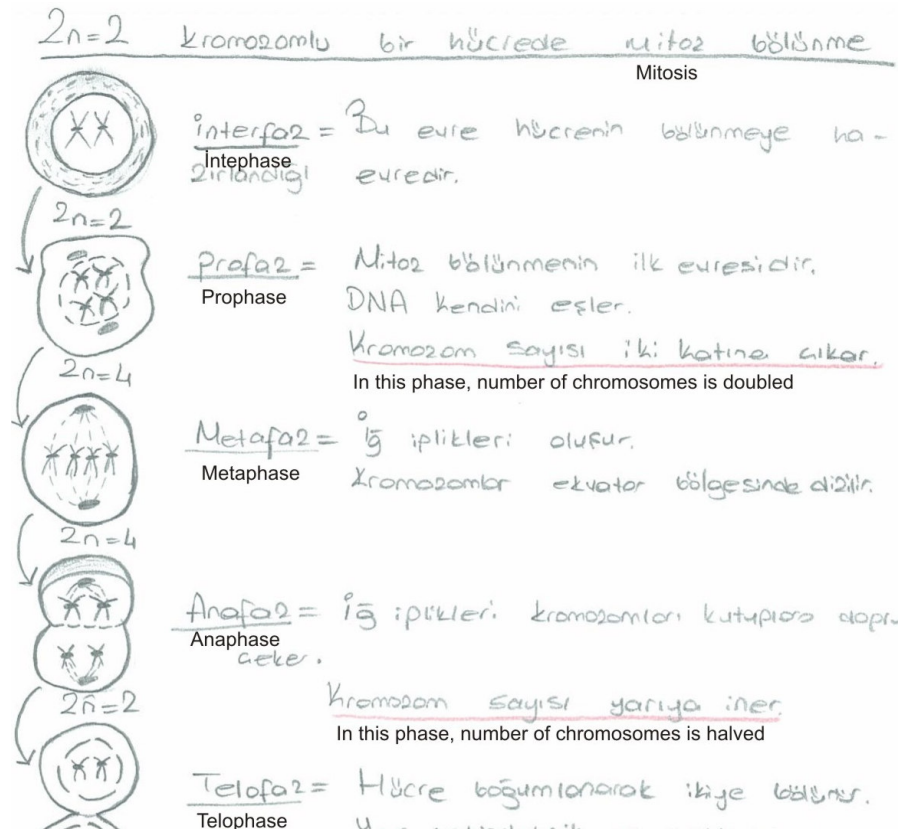 2n=2 kromozomlu bir hücrede mitoz bölünme
Mitosis
İnterfaz = Bu evre hücrenin bölünmeye ha-
İntephase
zırlandığı evredir.
2n=2
Profaz = Mitoz bölünmenin ilk evresidir.
Prophase
DNA kendini eşler.
Kromozom sayısı iki katına çıkar.
2n=4
In this phase, number of chromosomes is doubled
Metafaz = İğ iplikleri oluşur.
Metaphase
Kromozomlar ekvator bölgesinde dizilir.
2n=4
Anafaz = İğ iplikleri kromozomları kutuplara doğru
Anaphase
çeker.
2n=2
Kromozom sayısı yarıya iner.
In this phase, number of chromosomes is halved
Telofaz = Hücre boğumlanarak ikiye bölünür.
Telophase